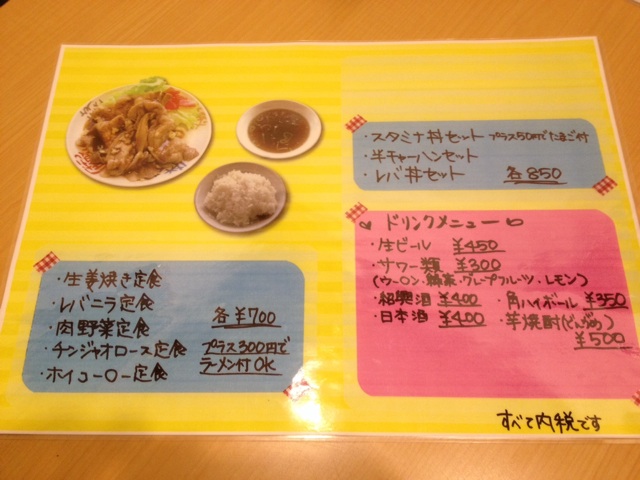 ・生姜焼き定食
・レバニラ定食
・肉野菜定食
・チンジャオロース定食
・ホイコーロー定食
各¥700
プラス300円で
ラーメン付OK
・スタミナ丼セット プラス50円でたまご付
・半チャーハンセット
・レバ丼セット 各850
ドリンクメニュー
・生ビール ¥450
・サワー類 ¥300
(ウーロン・緑茶・グレープフルーツ・レモン)
・紹興酒 ¥400 ・角ハイボール ¥350
・日本酒 ¥400 ・芋焼酎
¥500
すべて内税です